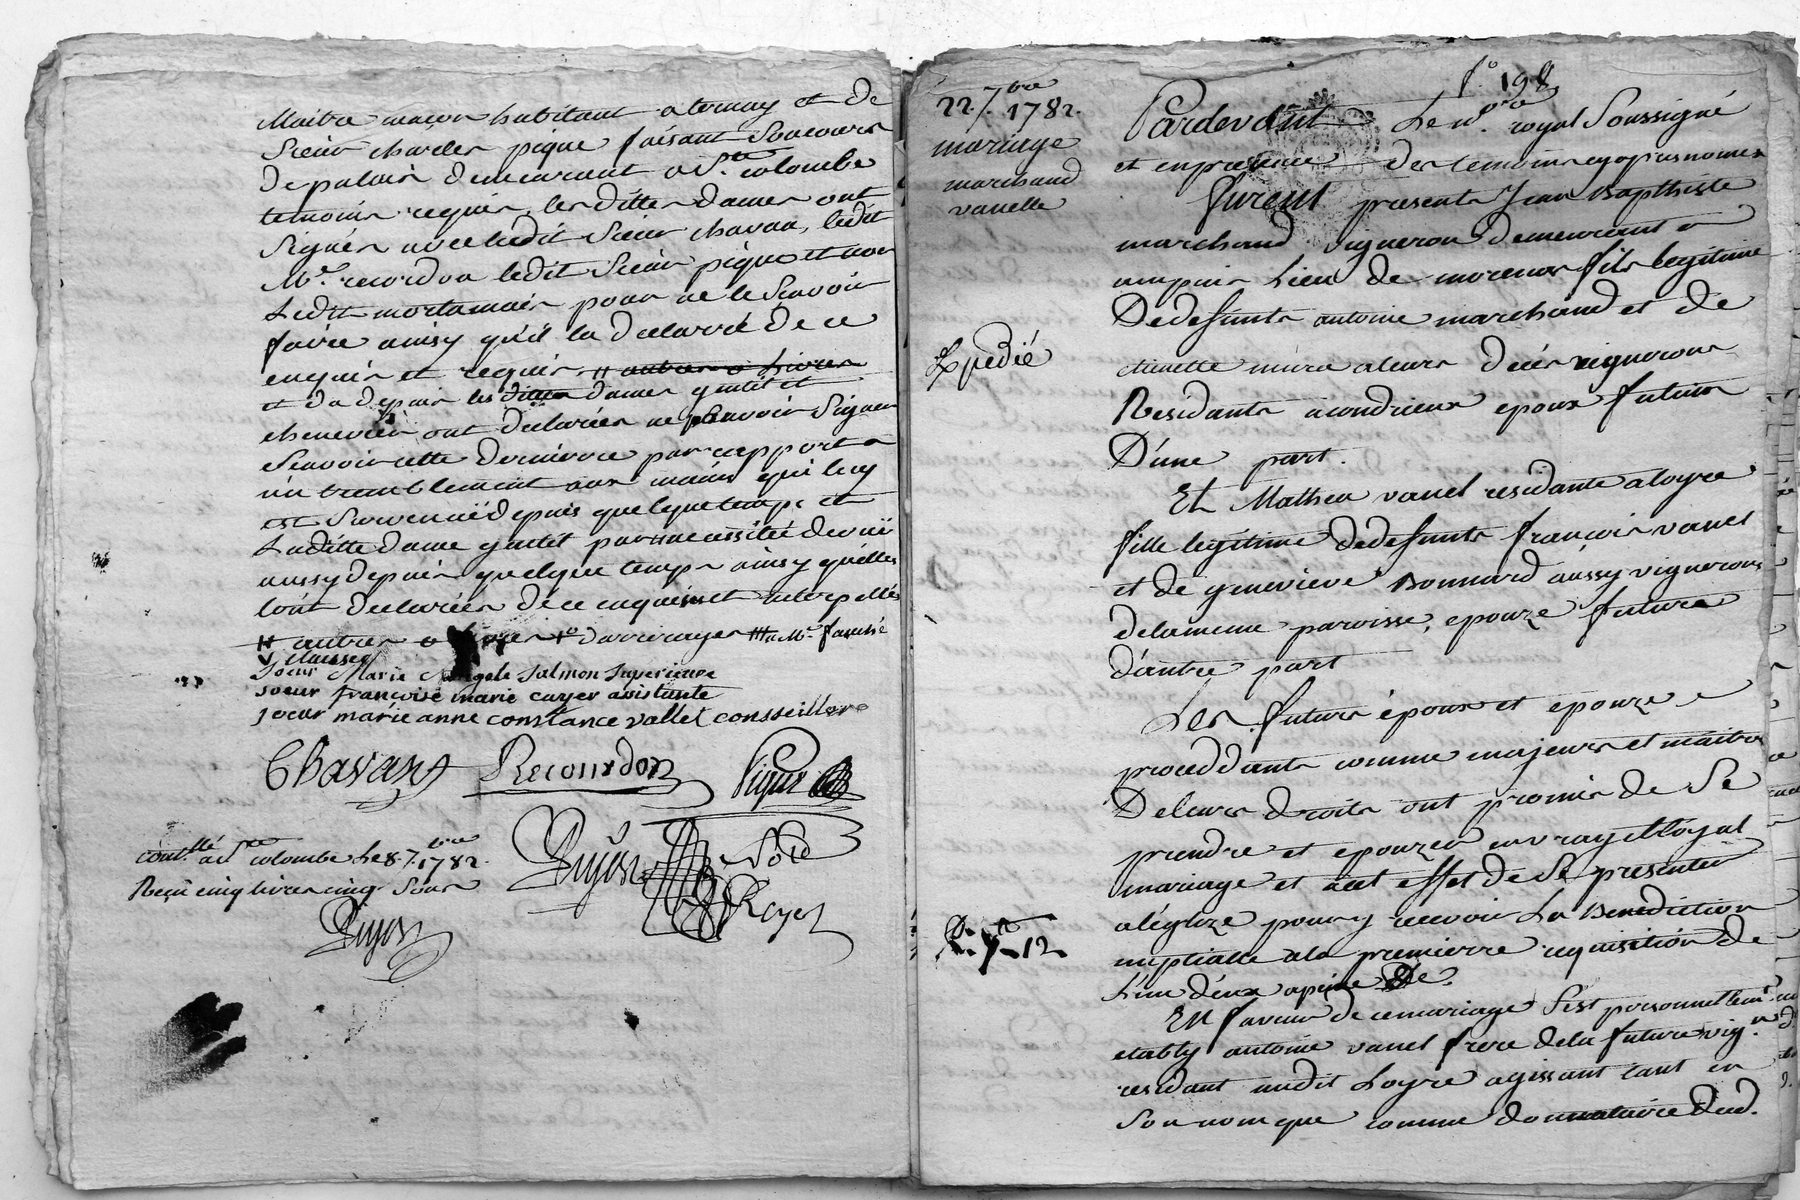 Maitre maçon habitant a ternay et de
Sieur charles pique faisant Son cours
de palais demeurant a Ste. colombe
temoins requis, les dittes dames ont
Signés avec ledit Sieur chavan, ledit
Me. recordon ledit Sieur pique et non
Ledit mortamais pour ne le Scavoir
faire ainsy qu'il la declarré de ce
enquis et requis # autres o Livres
et du depuis les dittes dames gentet et
chenevier ont declarées ne Scavoir Signer
Scavoir cette derniere par rapport a
un tremblement aux mains qui luy
est Survenüe depuis quelque temps et
Laditte dame gentet par necessitée de vüe
aussy depuis quelque temps ainsy qu'elles
l'ont declarées de ce enquises et interpellés
# autres o # o d'arrerages ### Me.
V clausses
Soeur Marie Angele Salmon Superieure
soeur françoise marie cuzer assistante
soeur marie anne constance vallet conseillere
Chavans Recourdon Pique
Dujon Nore Royal
contllé a Ste colombe Le 8. 7bre 1782.
Reçu cinq livres cinq Sous
Dujon
fo 198
22. 7bre 1782.
mariage
marchand
vanelle
Expedié
Pardevant Le nre. royal Soussigné
et en presence des temoins cy apres nommés
furent presents Jean Bapthiste
marchand vigneron demeurant a
ampuis Lieu de morenas fils legitime
De defunts antoine marchand et de
etiennette mure a leurs deces vignerons
Residants a condrieux epoux futur
D'une part.
Et Mathea vanel residante a loyre
fille legitime de defunts françois vanel
et de genevieve Bonnard aussy vignerons
de la meme parroisse, epouze future
d'autre part
Les futurs époux et epouze
proceddants comme majeurs et maitres
De leurs droits ont promis de Se
prendre et epouzer en vray et loyal
mariage et a cet effet de Se presenter
a léglize pour y recevoir La Benediction
nuptialle a la premierre requisition de
L'un d'eux a peine &e.
En faveur de ce mariage S'est personnellemt.
etably antoine vanel frere de la future vign.
residant audit Loyre agissant tant en
Son nom que comme donnataire dud.